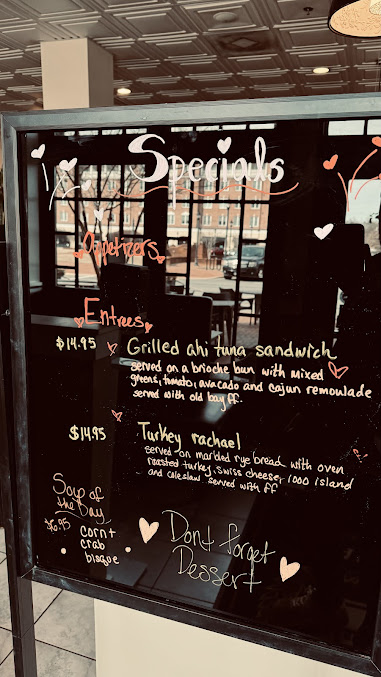 Specials
Appetizers
Entrees
$14.95 Grilled ahi tuna sandwich
served on a brioche bun with mixed
greens, tomato, avacado and cajun remoulade
served with old bay ff.
$14.95 Turkey rachael
served on marbled rye bread with oven
roasted turkey, swiss cheeser 1000 island
and coleslaw served with ff
Soup of
the Day
$6.95
corn +
crab
bisque
Dont forget
Dessert